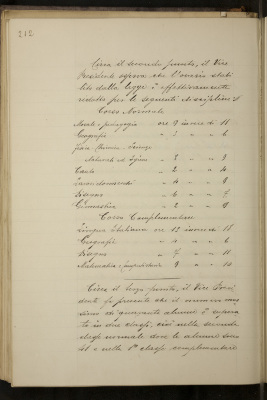 212
Circa il secondo punto, il Vice
Presidente espone che l'orario stabi
lito dalla legge è effettivamente
ridotto per le seguenti discipline
Corso Normale
Morale e pedagogia ore 9 invece di 11
Geografia " 3 " 6
Fisica Chimica Scienze
Naturali ed Igiene " 2 " 3
Canto " 2 " 4
Lavori donneschi " 4 " 9
Disegno " 6 " 7
Ginnastica " 2 " 9
Corso Complementare
Lingua Italiana ore 12 invece di 15
Geografia " 4 " 6
Disegno " 7 " 11
Matematica e " 9 " 10
Circa il terzo punto, il Vice Presi
dente fa presente che il numero mas
simo di quaranta alunne è supera
to in due classi, cioè nella seconda
classe normale dove le alunne sono
e nella 1ª classe complementare